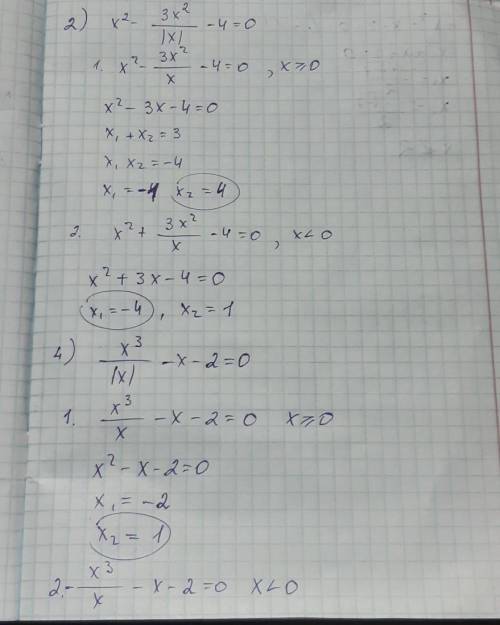 2) x² - 3x²/|x| - 4 = 0
1. x² - 3x²/x - 4 = 0 , x ≥ 0
x² - 3x - 4 = 0
x₁ + x₂ = 3
x₁ x₂ = -4
x₁ = -1 x₂ = 4
2. x² + 3x²/x - 4 = 0 , x < 0
x² + 3x - 4 = 0
x₁ = -4 , x₂ = 1
4) x³/|x| - x - 2 = 0
1. x³/x - x - 2 = 0 x ≥ 0
x² - x - 2 = 0
x₁ = -2
x₂ = 1
2. - x³/x - x - 2 = 0 x < 0